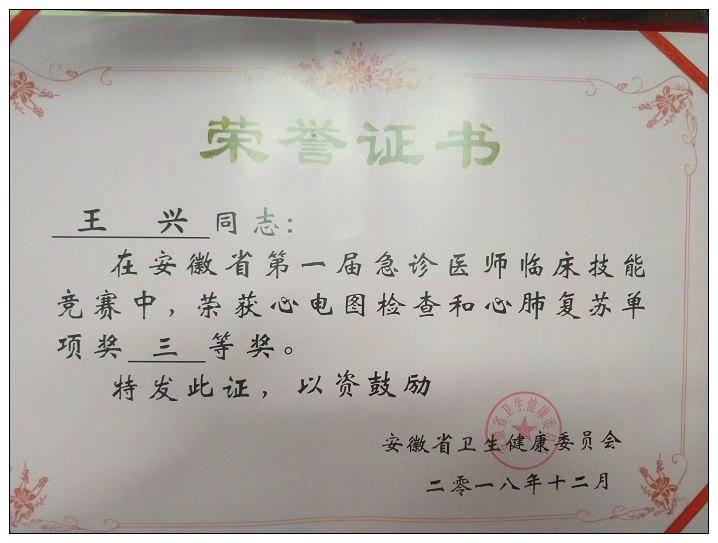 荣誉证书
王 兴 同志：
在安徽省第一届急诊医师临床技能
竞赛中，荣获心电图检查和心肺复苏单
项奖 三 等奖。
特发此证，以资鼓励
安徽省卫生健康委员会
安徽省卫生健康委员会
二零一八年十二月